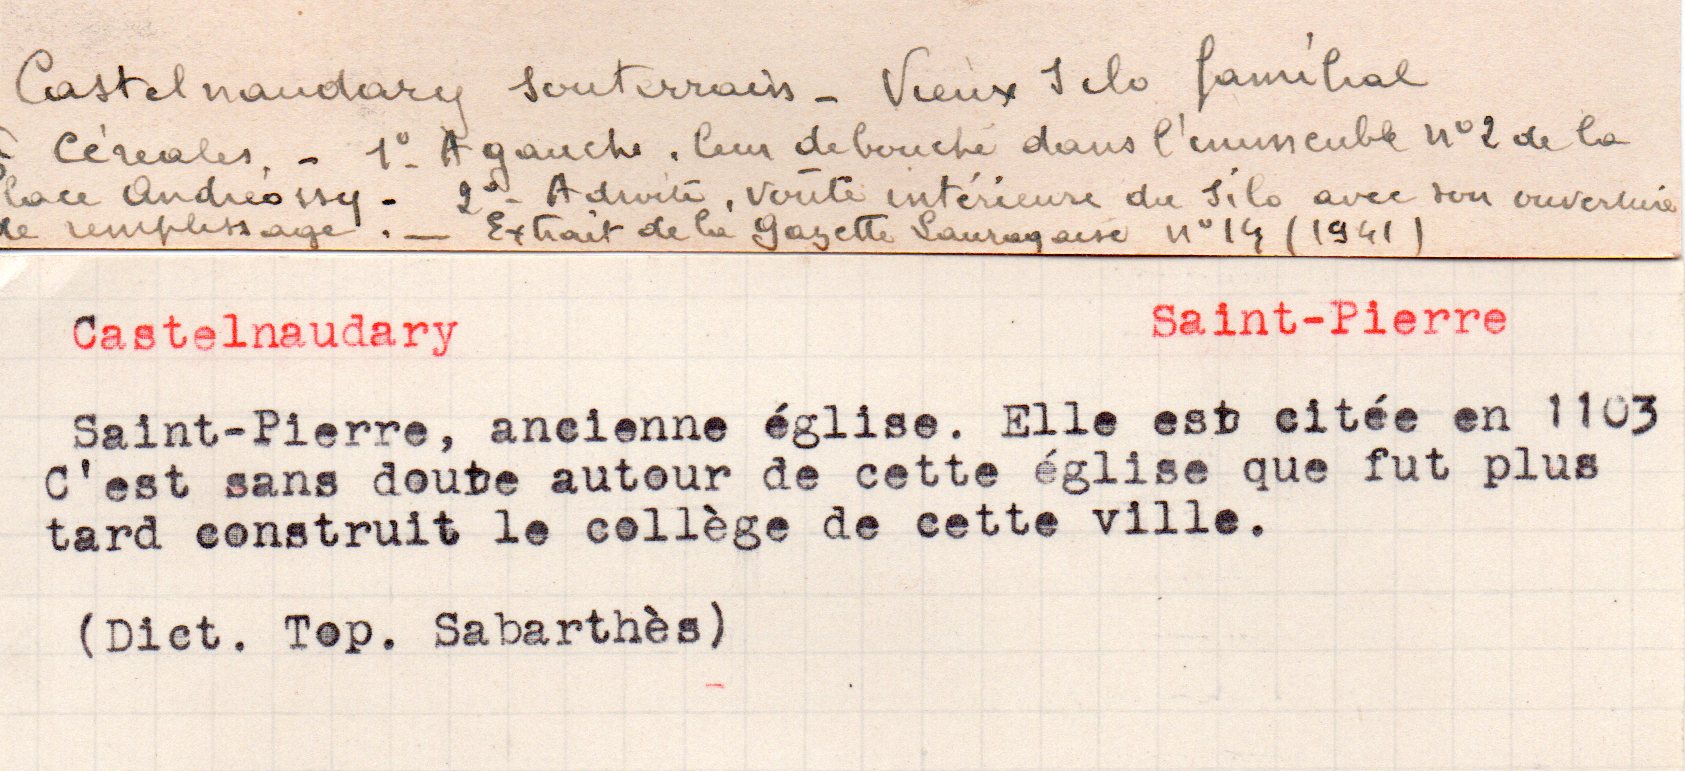 Castelnaudary souterrain - Vieux Silo familial
à Céréales. - 1°- A gauche, leur débouché dans l'immeuble n°2 de la
Place Andréossy - 2°- A droite, voûte intérieure du Silo avec son ouverture
de remplissage. — Extrait de la Gazette Lauragaise n° 14 (1941)
Castelnaudary Saint-Pierre
Saint-Pierre, ancienne église. Elle est citée en 1103
C'est sans doute autour de cette église que fut plus
tard construit le collège de cette ville.
(Dict. Top. Sabarthès)